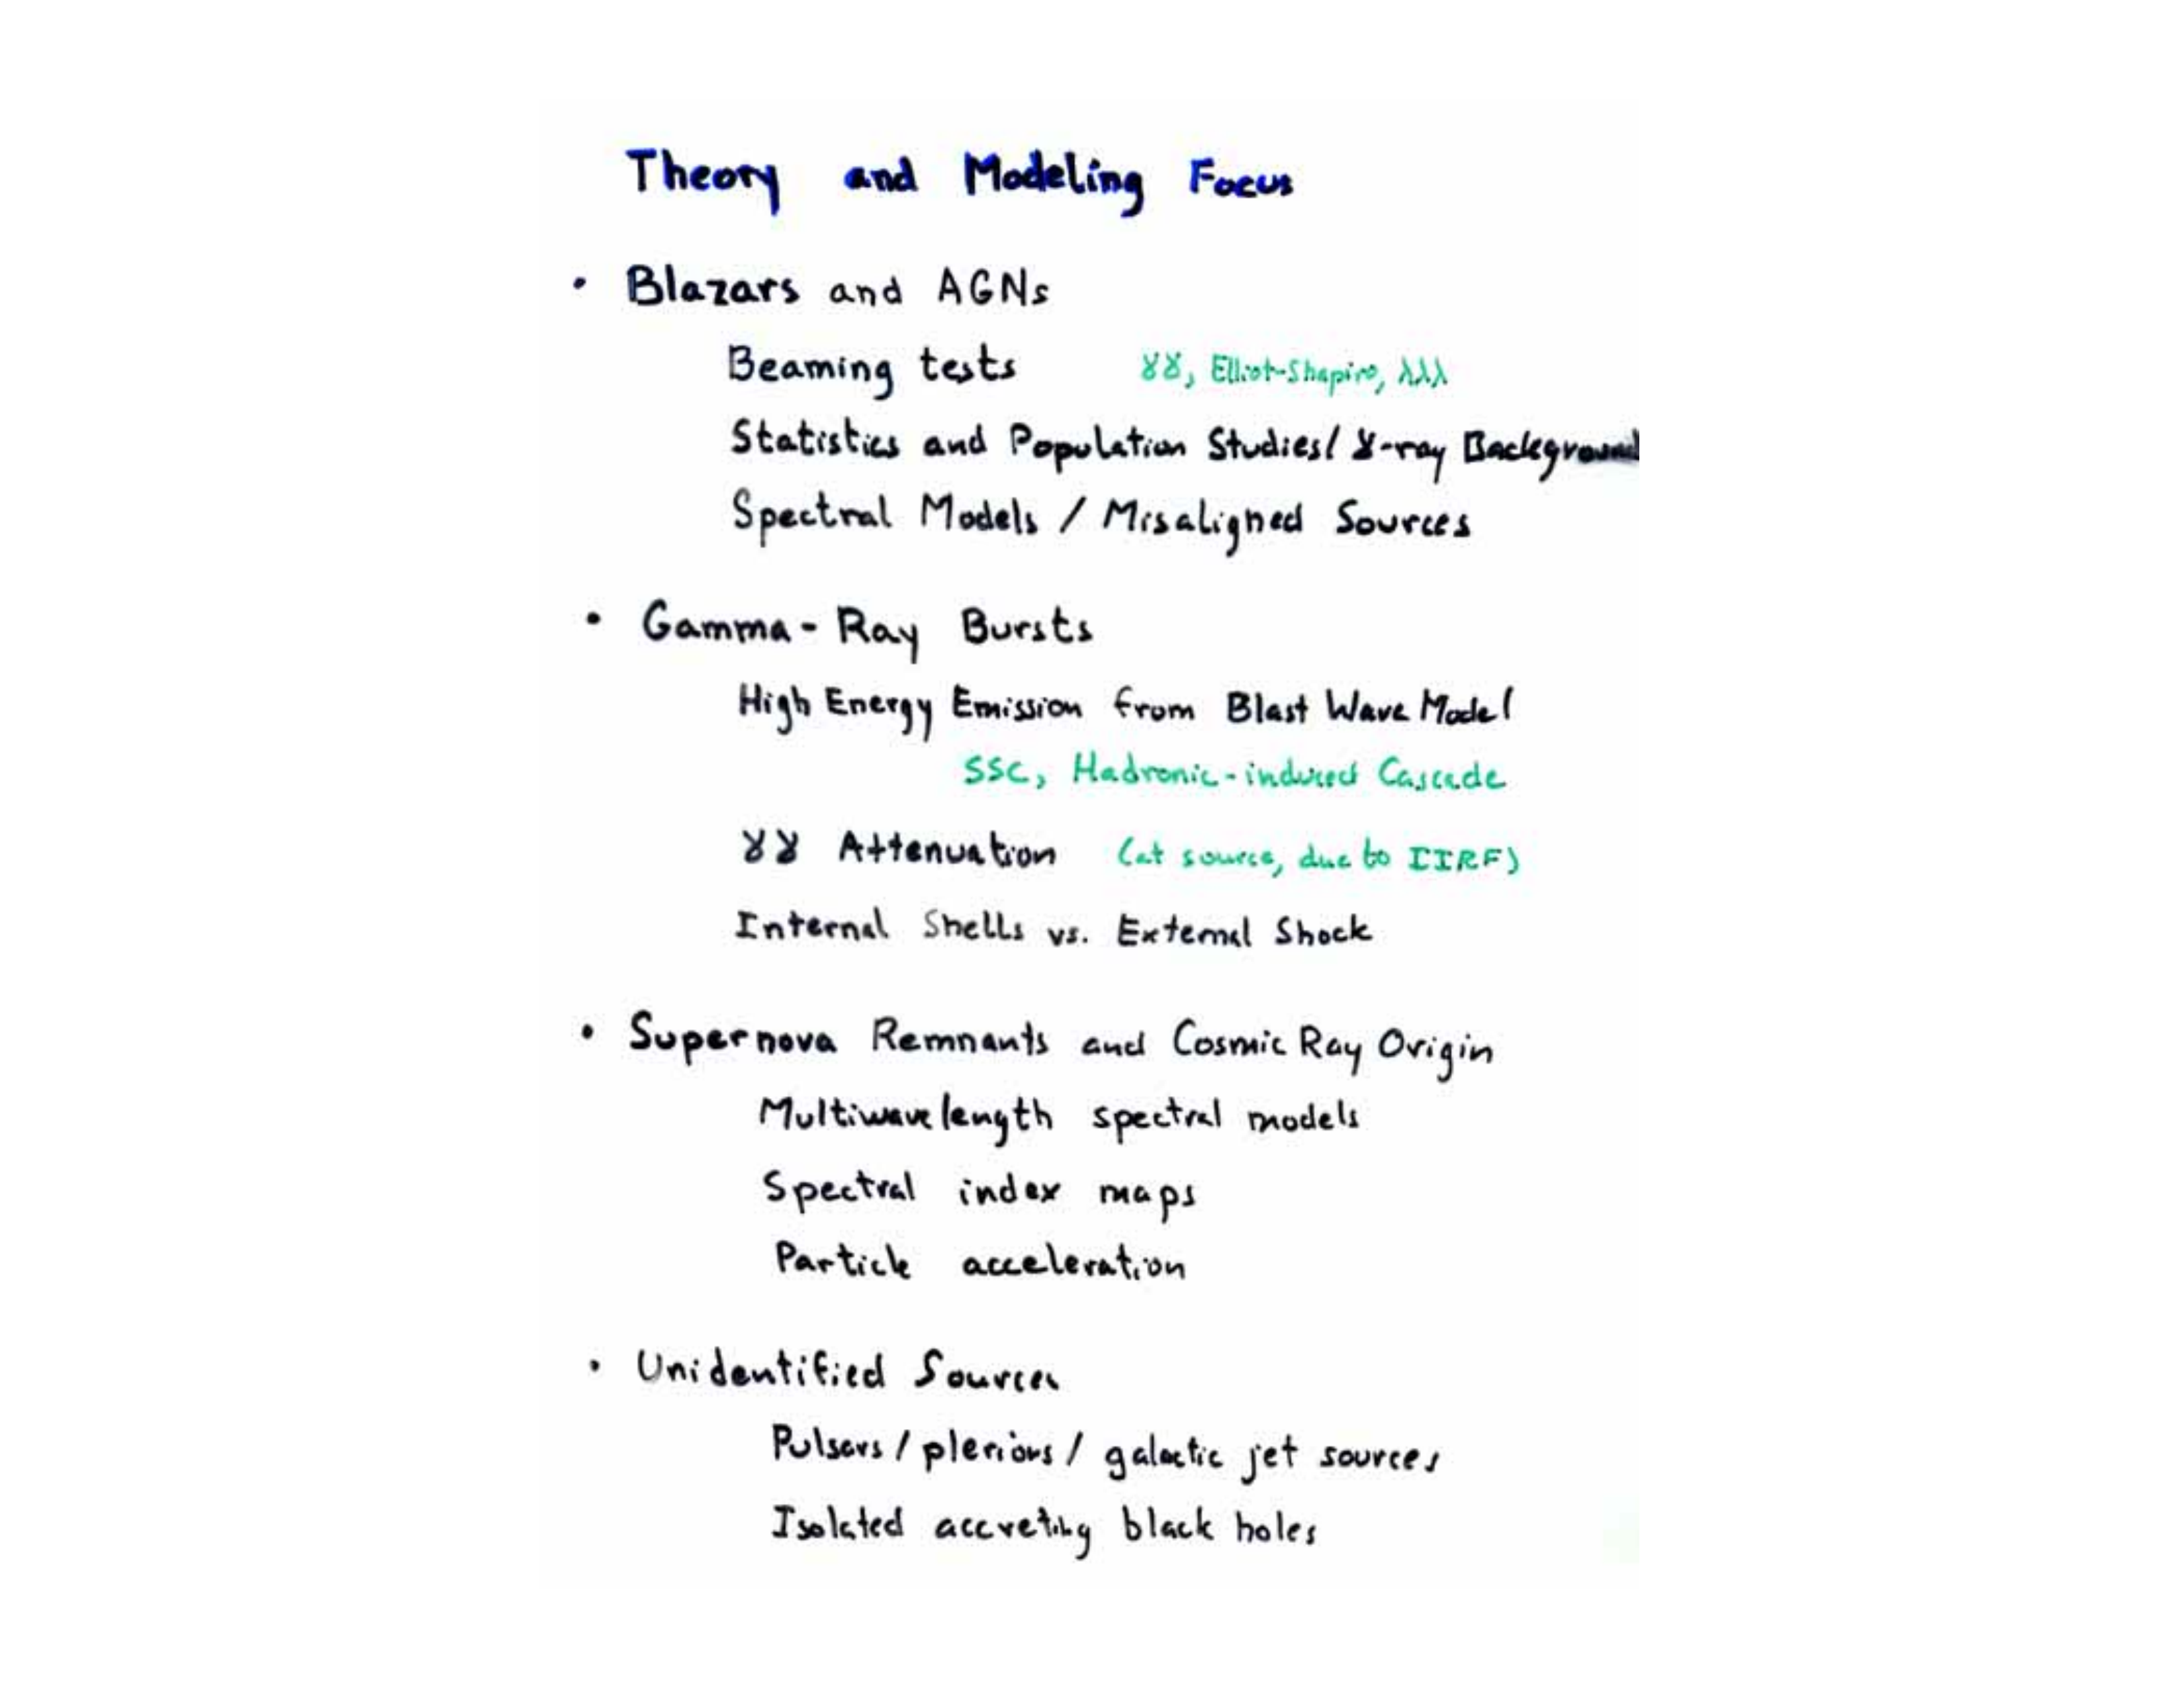 Theory and Modeling Focus
• Blazars and AGNs
Beaming tests γγ, Elliot-Shapiro, λλλ
Statistics and Population Studies/ γ-ray Background
Spectral Models / Misaligned Sources
• Gamma-Ray Bursts
High Energy Emission from Blast Wave Model
SSC, Hadronic-induced Cascade
γγ Attenuation (at source, due to IIRF)
Internal Shells vs. External Shock
• Supernova Remnants and Cosmic Ray Origin
Multiwavelength spectral models
Spectral index maps
Particle acceleration
• Unidentified Sources
Pulsars / plerions / galactic jet sources
Isolated accreting black holes